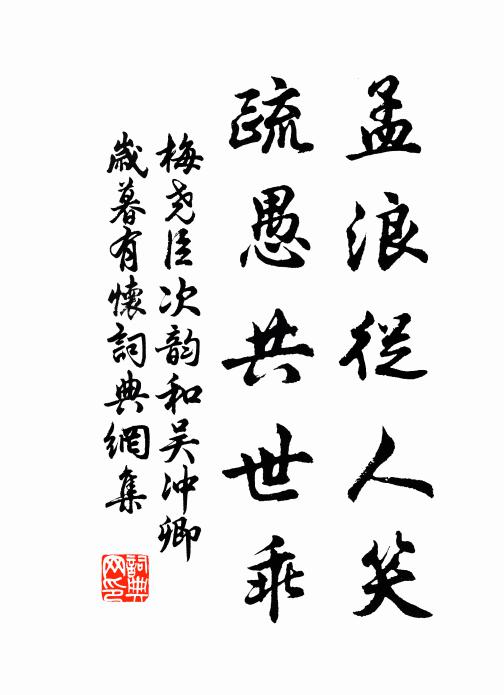 孟浪從人笑
疏愚共世乖
梅堯臣次韵和吴沖卿
歲暮有懷詞典網集
詞典
网印